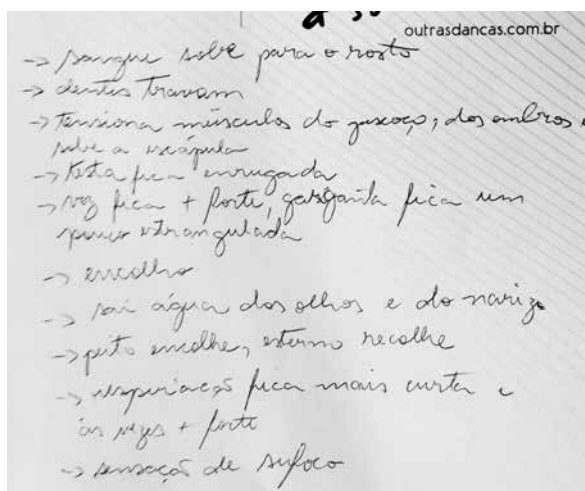 outrasdancas.com.br
-> sangue sobe para o rosto
-> dentes travam
-> tensiona músculos do pescoço, dos ombros e
sobe a escápula
-> testa fica enrugada
-> voz fica + forte, garganta fica um
pouco estrangulada
-> encolho
-> sai água dos olhos e do nariz
-> peito encolhe, esterno recolhe
-> respiração fica mais curta e
às vezes + forte
-> sensação de sufoco